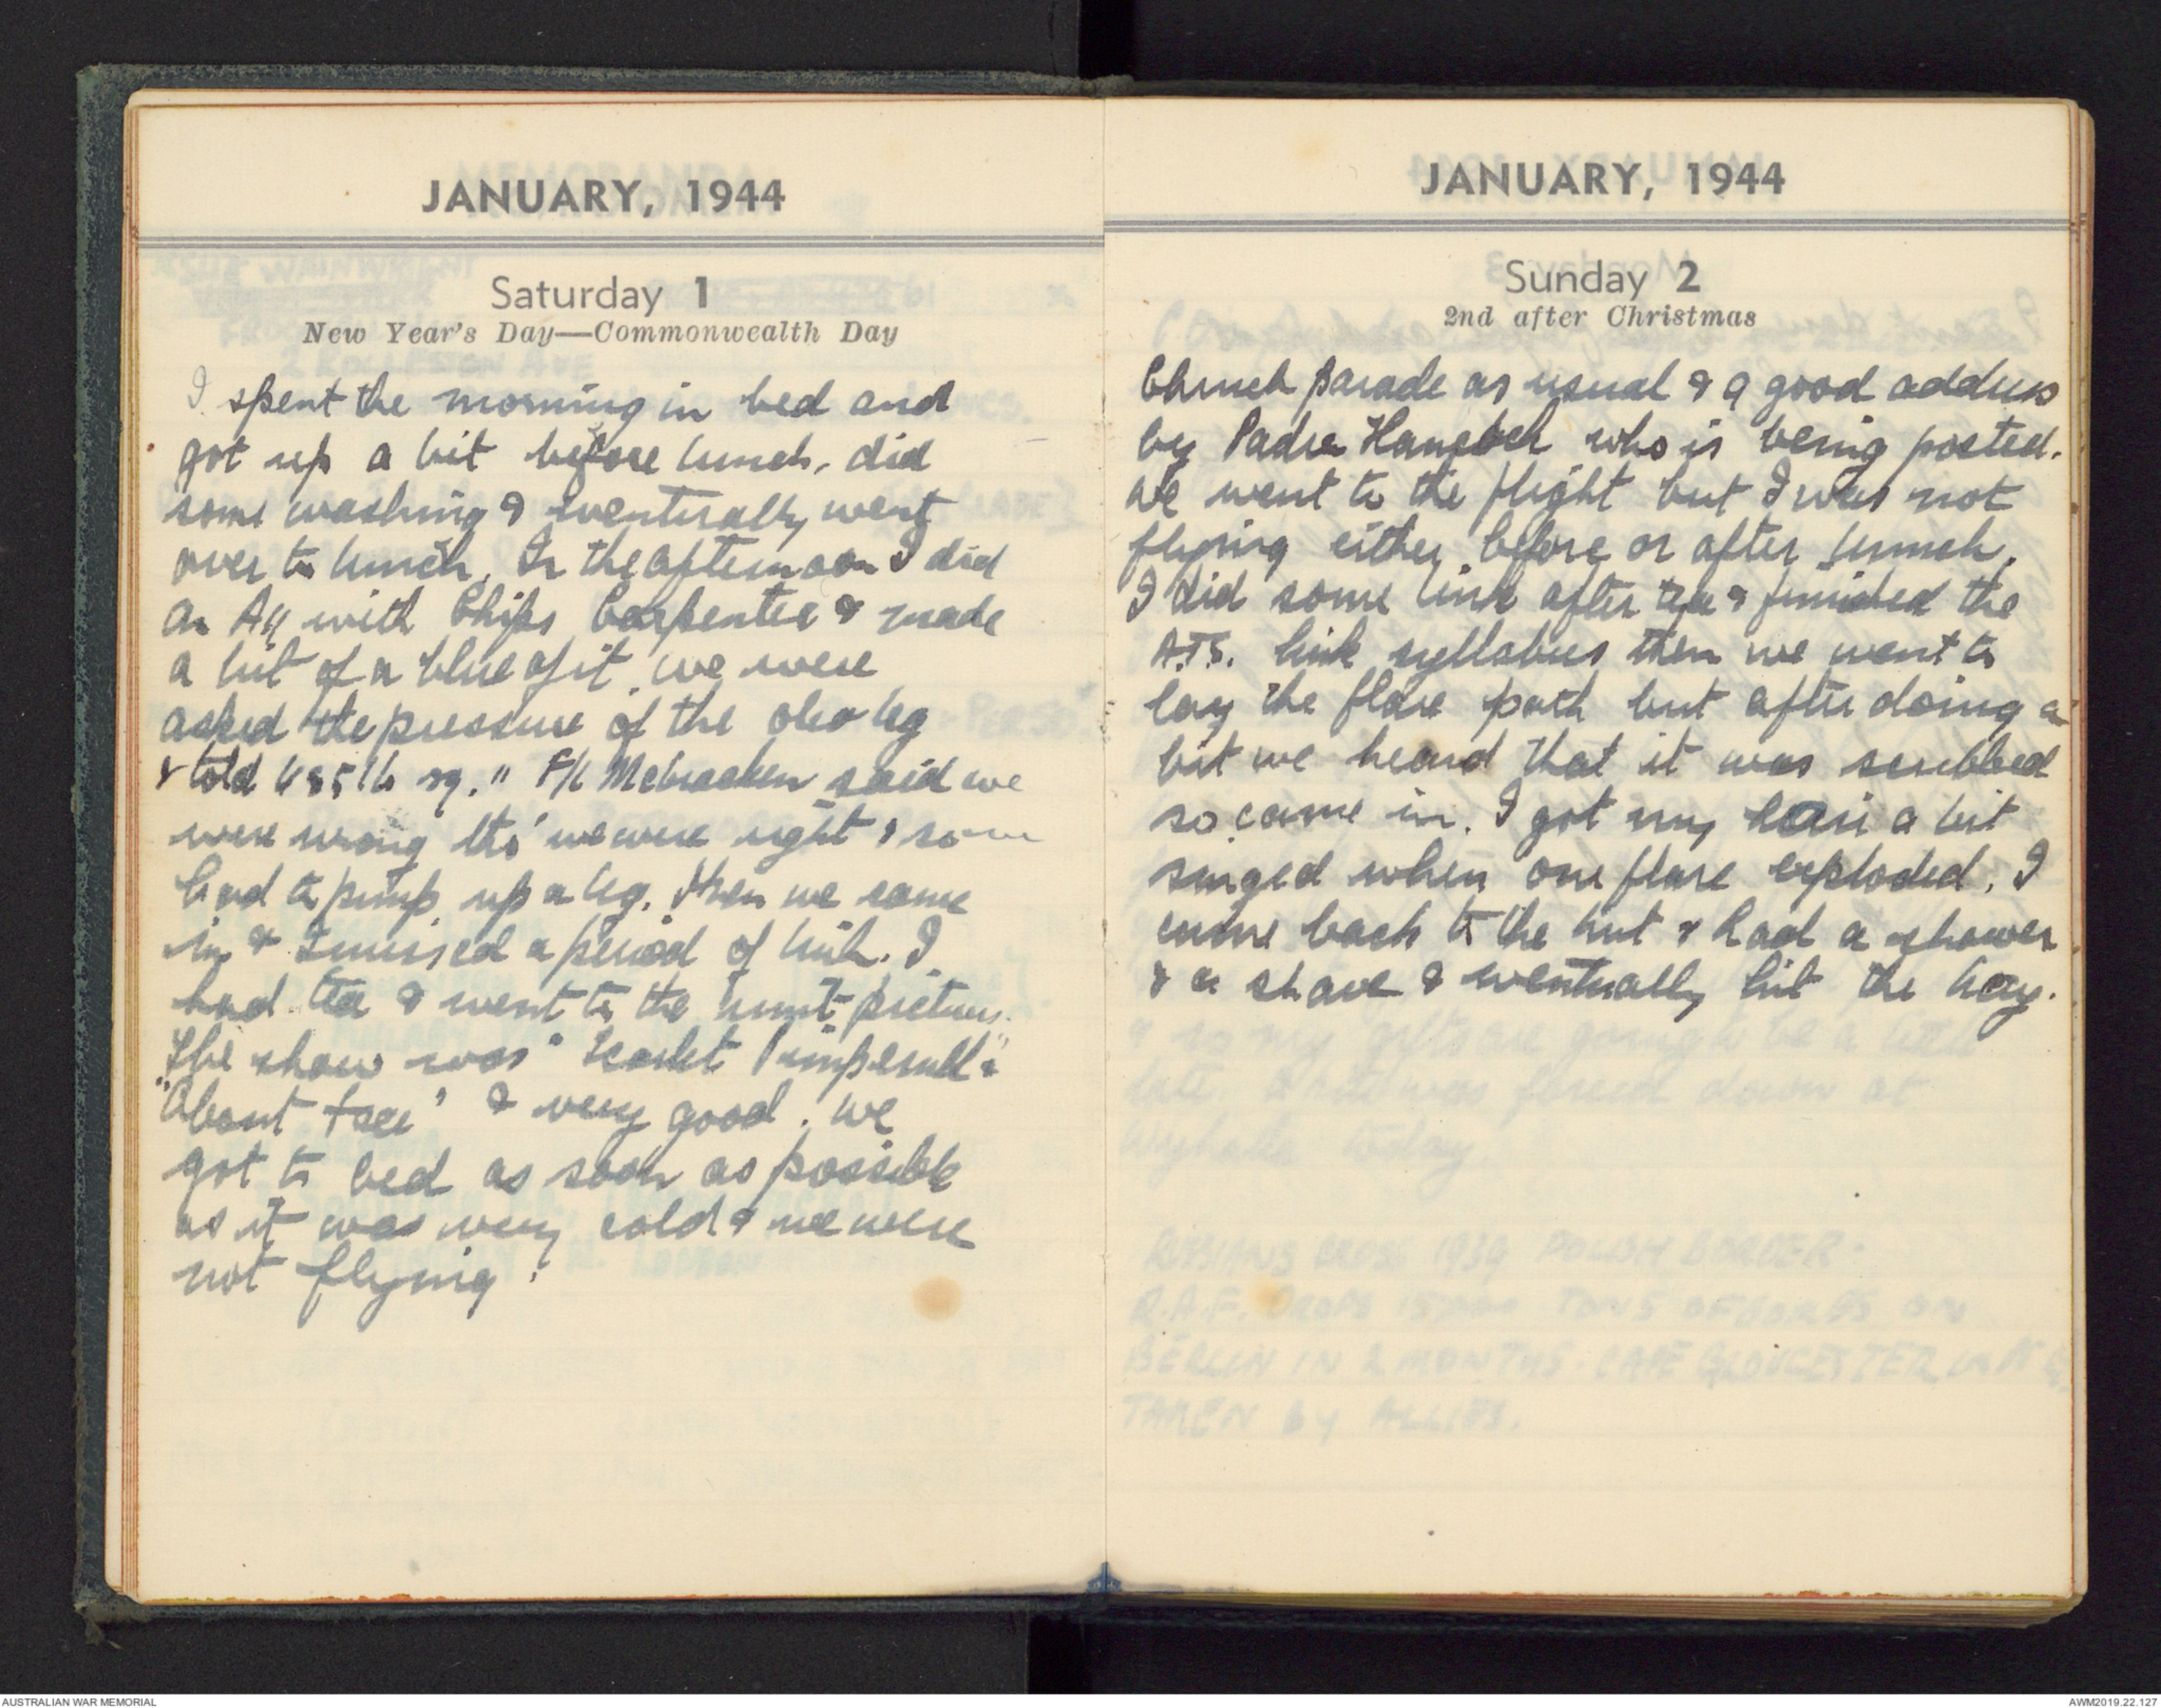 JANUARY, 1944
Saturday 1
New Year's Day—Commonwealth Day
I spent the morning in bed and
got up a bit before lunch, did
some washing & eventually went
over to lunch. In the afternoon I did
an A11 with Chips Carpenter & made
a bit of a blue of it, we were
asked the pressure of the oleo leg
& told 485 lb sq." F/L McCracken said we
were wrong tho' we were right & so we
had to pump up a leg. Then we came
in & I missed a period of link. I
had tea & went to the hut pictures.
The show was "Scarlet Pimpernell" &
"About face" & very good. We
got to bed as soon as possible
as it was very cold & we were
not flying.
JANUARY, 1944
Sunday 2
2nd after Christmas
Church parade as usual & a good address
by Padre who is being posted.
We went to the flight but I was not
flying either before or after lunch.
I did some link after tea & finished the
A.T.S. link syllabus then we went to
lay the flare path but after doing a
bit we heard that it was scrubbed
so came in. I got my hair a bit
singed when one flare exploded. I
came back to the hut & had a shower
& a shave & eventually hit the hay.
AUSTRALIAN WAR MEMORIAL
AWM2019.22.127